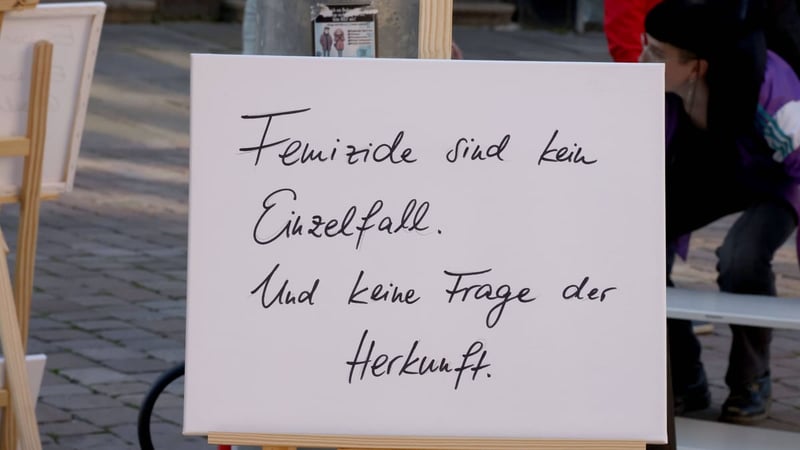 Femizide sind kein
Einzelfall.
Und keine Frage der
Herkunft.